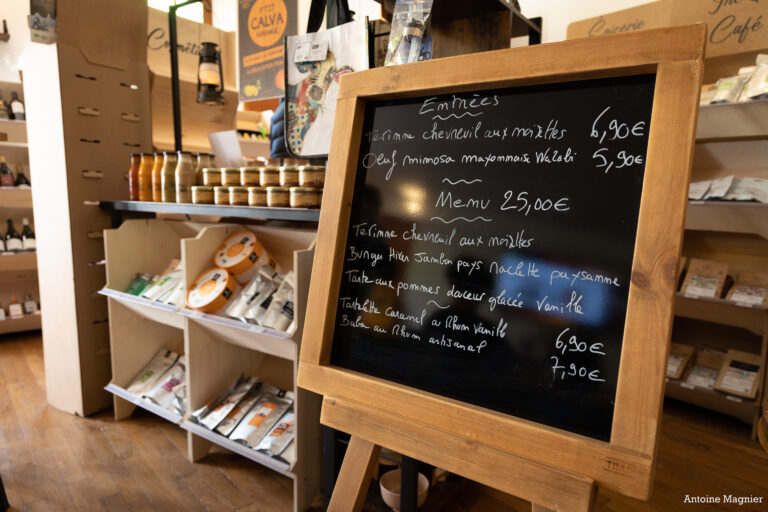 P'TIT
CALVA
ARRANGÉ
Cosméti
Épicerie
Thé &
Café
Entrées
Terinne chevreuil aux noizettes 6,90€
Oeuf mimosa mayonnaise Wazabi 5,90€
Menu 25,00€
Terinne chevreuil aux noizettes
Bungu Hiver Jambon pays raclette paysanne
Tarte aux pommes douceur glacée vanille
Tartelette caramel a Rhum vanille 6,90€
Baba au Rhum artisanal 7,90€
Antoine Magnier